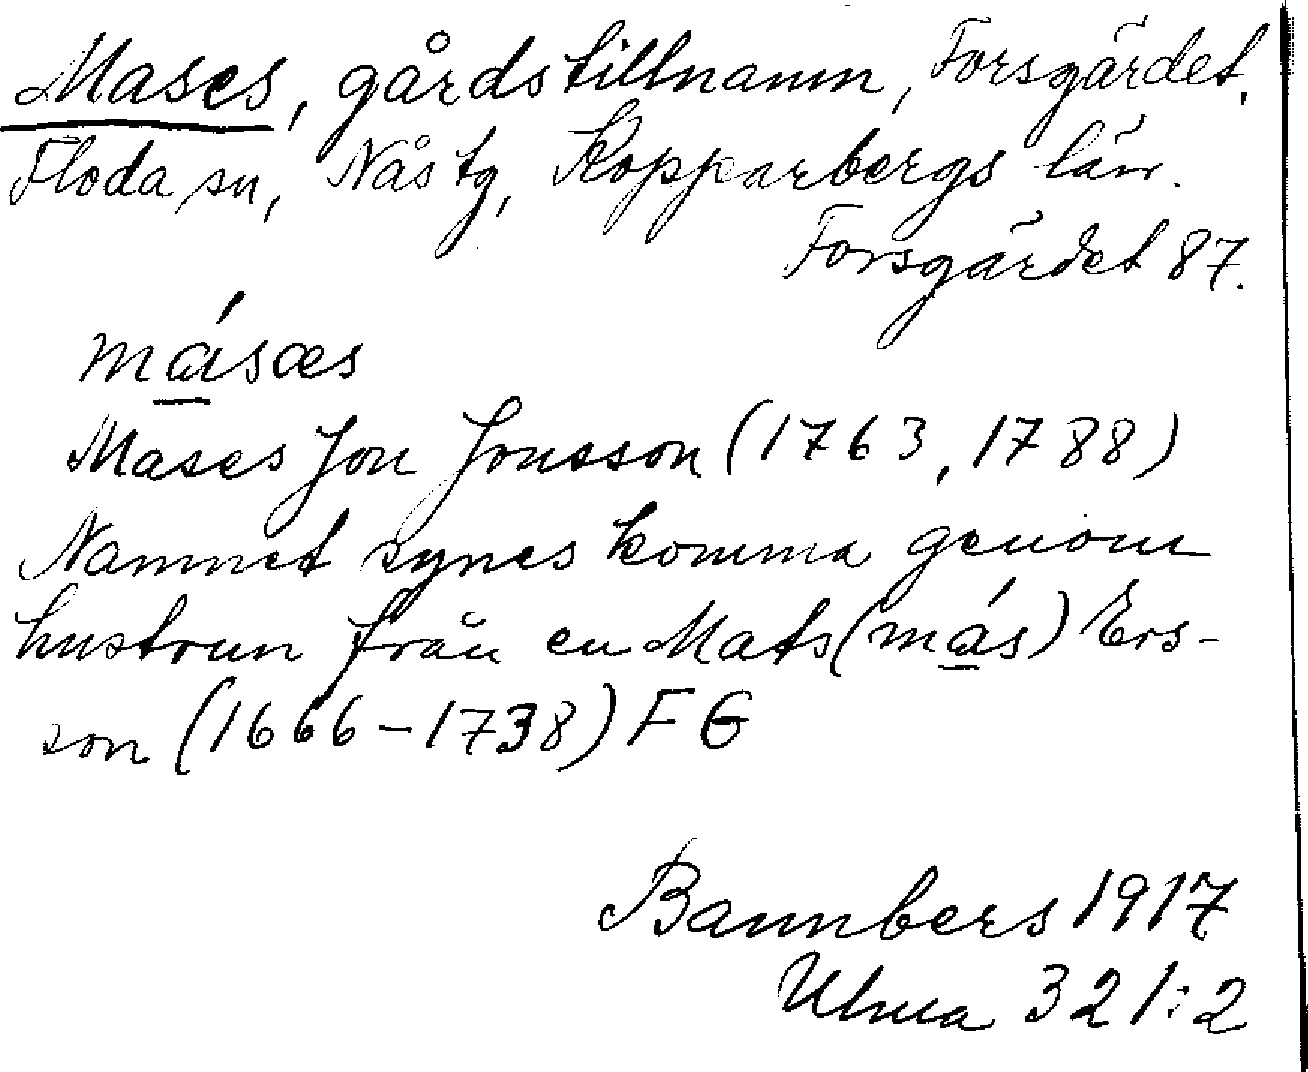 Mases, gårdstillnamn, Forsgärdet,
Floda sn, Nås tg, Kopparbergs län.
Forsgärdet 87.
másæs
Mases Jon Jonsson (1763, 1788)
Namnet synes komma genom
hustrun från en Mats (más) Ers-
son (1666-1738) F G
Bannbers 1917
Ulma 321:2